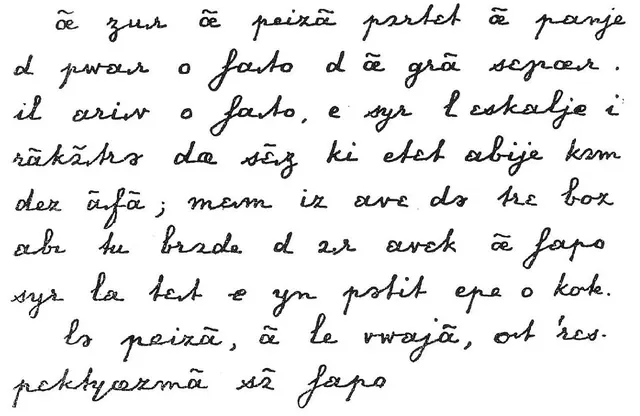 œ̃ ʒur œ̃ peizã pɔrtɛt œ̃ panje
d pwar o ʃato d œ̃ grã sɛɲœr .
il ariv o ʃato, e syr l ɛskalje i
rãkɔ̃trə dœ sɛ̃ʒ ki etɛt abije kɔm
dez ãfã ; mɛm iz avɛ də trɛ boz
abi tu brɔde d ɔr avɛk œ̃ ʃapo
syr la tɛt e yn pətit epe o kote.
lə peizã, ã le vwajã, ot 'rɛs-
pɛktyøzmã sɔ̃ ʃapo